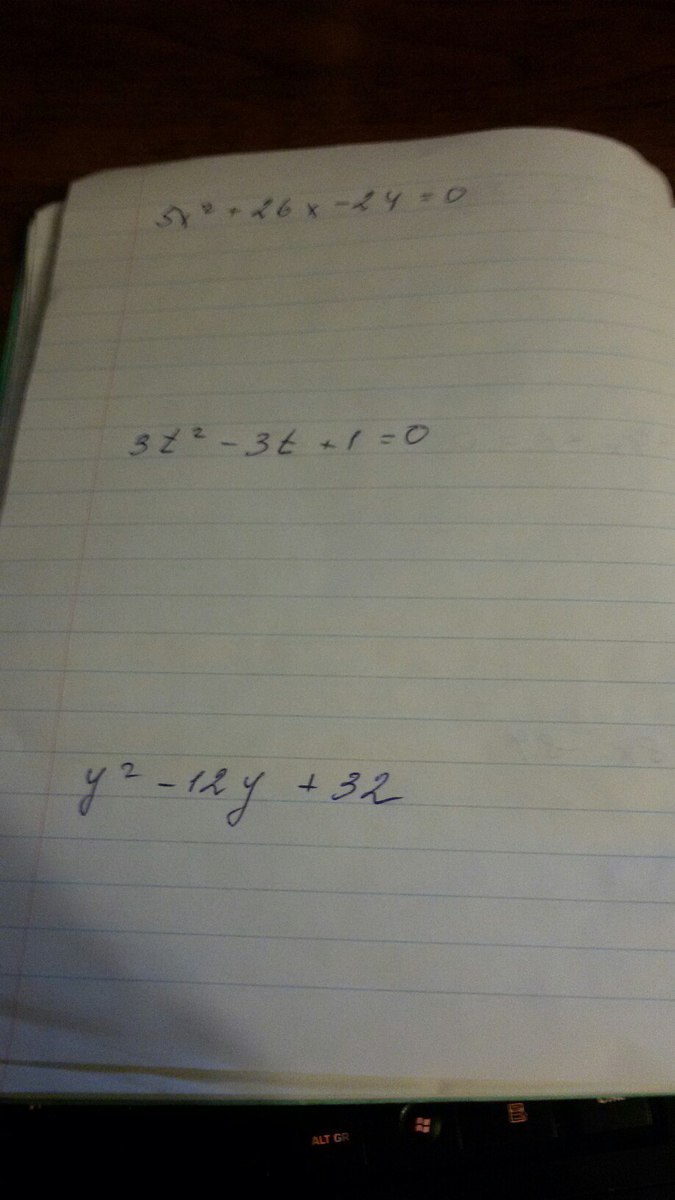 5x² + 26x - 24 = 0
3t² - 3t + 1 = 0
y² - 12y + 32
ALT GR